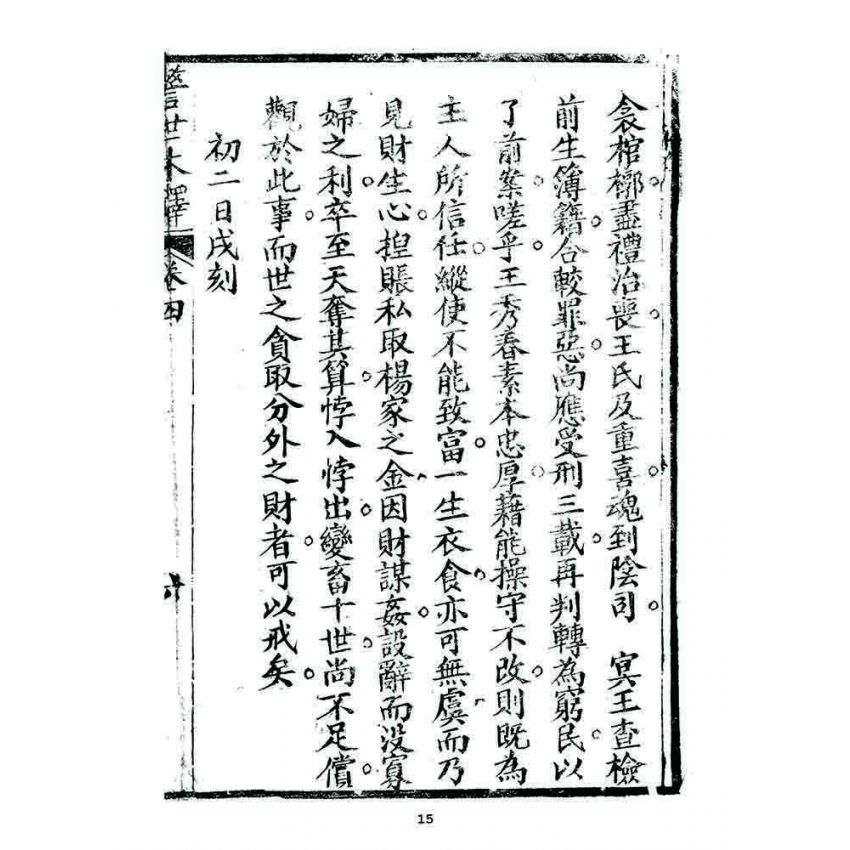 衾棺槨盡禮治喪王氏及重喜魂到陰司 冥王查檢
前生簿籍合較罪惡尚應受刑三載再判轉為窮民以
了前案嗟乎王秀春素本忠厚藉能操守不改則既為
主人所信任縱使不能致富一生衣食亦可無虞而乃
見財生心揑賬私取楊家之金因財謀姦設辭而沒寡
婦之利卒至天奪其算悖入悖出變畜十世尚不足償
觀於此事而世之貪取分外之財者可以戒矣
初二日戌刻
世木鐸 卷四
15